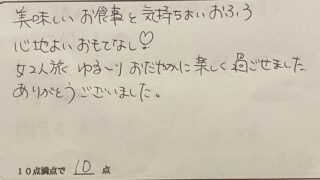 美味しいお食事と気持ちよいおふろ
心地よいおもてなし♡
女2人旅 ゆる〜り おだやかに楽しく過ごせました。
ありがとうございました。
10点満点で 10 点